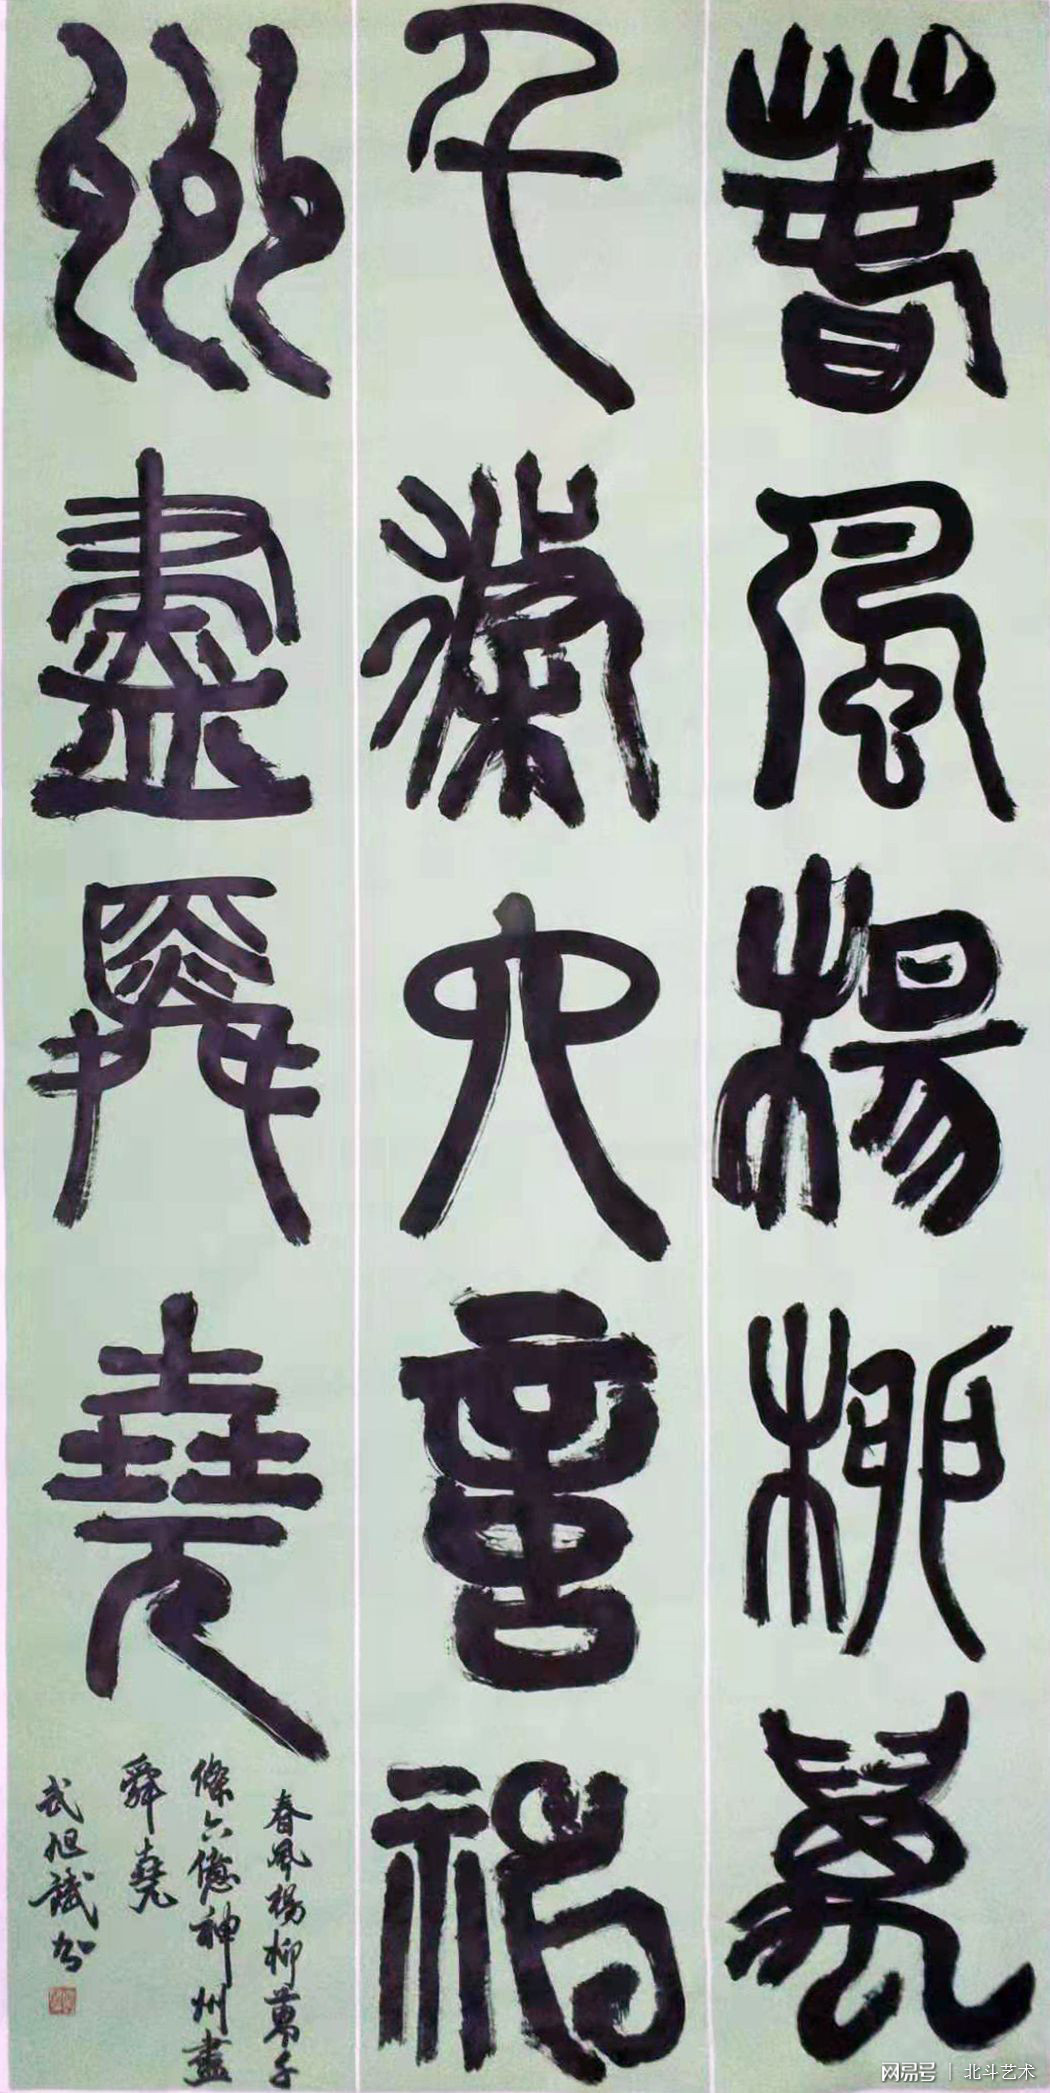 春風楊柳萬
千條六億神
州盡舜堯
春風楊柳萬千
條六億神州盡
舜堯
武旭試書
网易号 | 北斗艺术